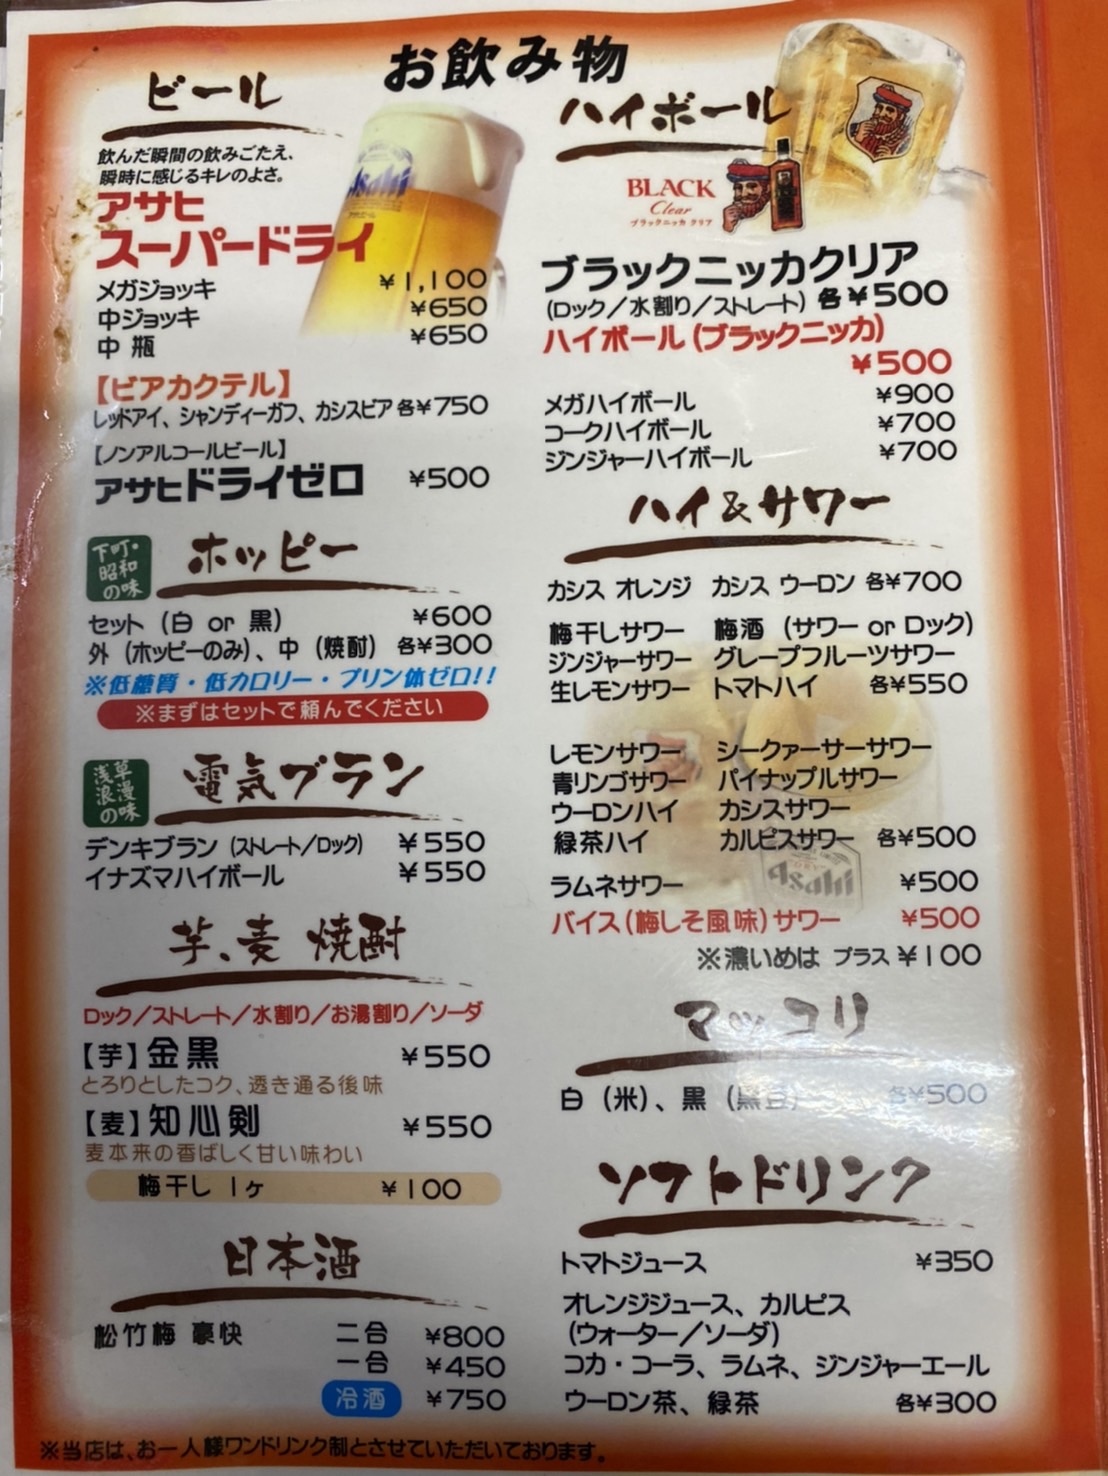 お飲み物
ビール
飲んだ瞬間の飲みごたえ、
瞬時に感じるキレのよさ。
アサヒ
スーパードライ
Asahi
メガジョッキ ¥1,100
中ジョッキ ¥650
中 瓶 ¥650
【ビアカクテル】
レッドアイ、シャンディーガフ、カシスビア 各¥750
【ノンアルコールビール】
アサヒドライゼロ ¥500
下町・昭和の味
ホッピー
セット（白 or 黒） ¥600
外（ホッピーのみ）、中（焼酎） 各¥300
※低糖質・低カロリー・プリン体ゼロ!!
※まずはセットで頼んでください
浅草浪漫の味
電気ブラン
デンキブラン（ストレート／ロック） ¥550
イナズマハイボール ¥550
芋、麦 焼酎
ロック／ストレート／水割り／お湯割り／ソーダ
【芋】金黒 ¥550
とろりとしたコク、透き通る後味
【麦】知心剣 ¥550
麦本来の香ばしく甘い味わい
梅干し 1ヶ ¥100
日本酒
松竹梅 豪快 二合 ¥800
一合 ¥450
冷酒 ¥750
ハイボール
BLACK
Clear
ブラックニッカ クリア
ブラックニッカクリア
（ロック／水割り／ストレート）各¥500
ハイボール（ブラックニッカ）
¥500
メガハイボール ¥900
コークハイボール ¥700
ジンジャーハイボール ¥700
ハイ＆サワー
カシス オレンジ カシス ウーロン 各¥700
梅干しサワー 梅酒（サワー or ロック）
ジンジャーサワー グレープフルーツサワー
生レモンサワー トマトハイ 各¥550
レモンサワー シークァーサーサワー
青リンゴサワー パイナップルサワー
ウーロンハイ カシスサワー
緑茶ハイ カルピスサワー 各¥500
Asahi
ラムネサワー ¥500
バイス（梅しそ風味）サワー ¥500
※濃いめは プラス ¥100
マッコリ
白（米）、黒（黒豆） 各¥500
ソフトドリンク
トマトジュース ¥350
オレンジジュース、カルピス
（ウォーター／ソーダ）
コカ・コーラ、ラムネ、ジンジャーエール
ウーロン茶、緑茶 各¥300
※当店は、お一人様ワンドリンク制とさせていただいております。